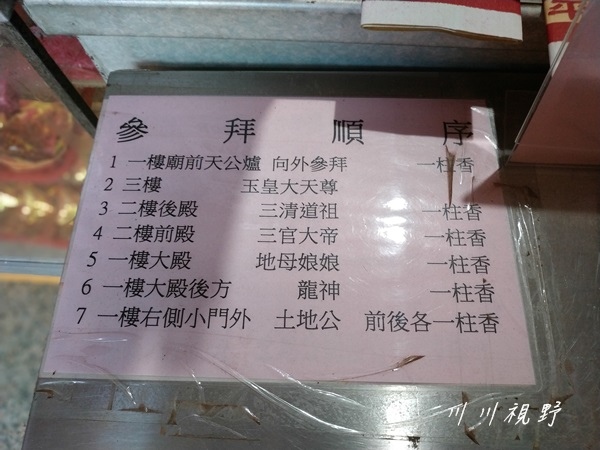 參拜順序
1 一樓廟前天公爐 向外參拜 一柱香
2 三樓 玉皇大天尊
3 二樓後殿 三清道祖 一柱香
4 二樓前殿 三官大帝 一柱香
5 一樓大殿 地母娘娘 一柱香
6 一樓大殿後方 龍神 一柱香
7 一樓右側小門外 土地公 前後各一柱香
川川視野